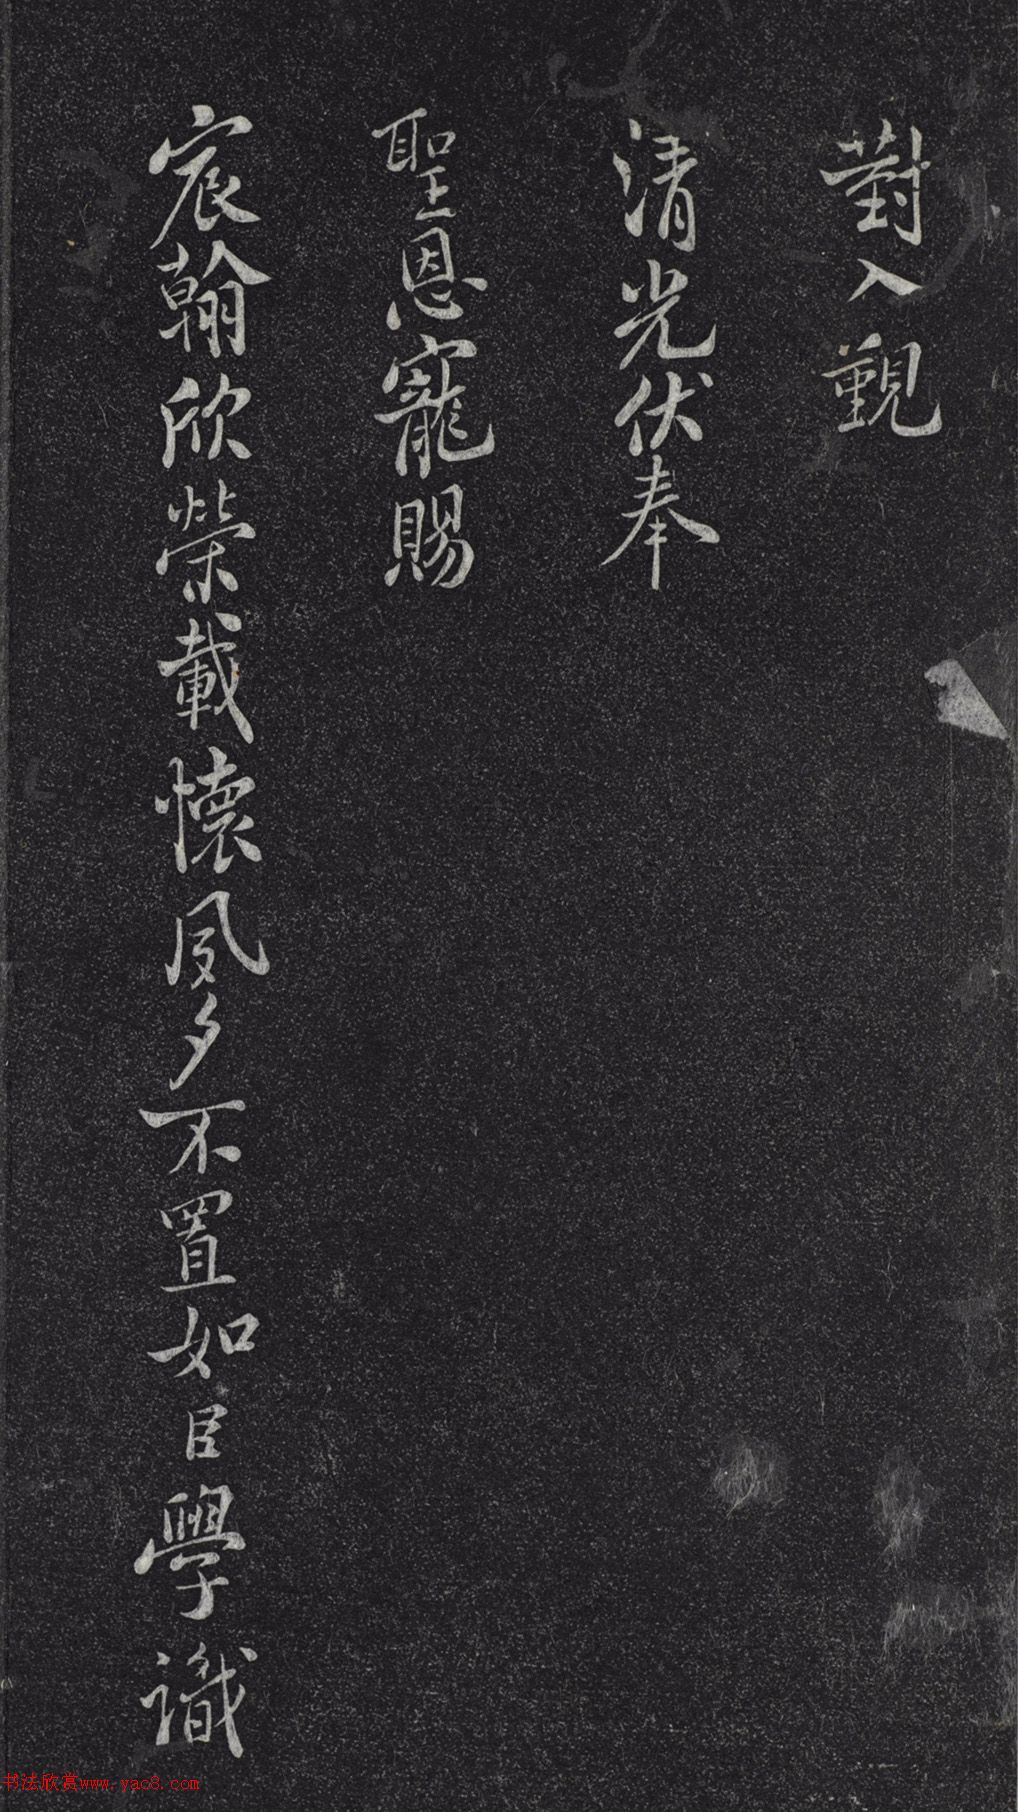 對入覲
清光伏奉
聖恩寵賜
宸翰欣榮載懷夙夕不置如臣學識
书法欣赏www.yac8.com